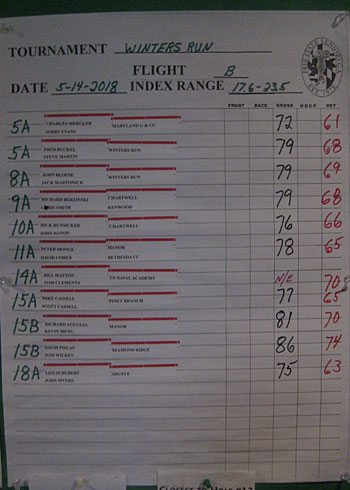 TOURNAMENT WINTERS RUN
FLIGHT B
DATE 5-14-2018 INDEX RANGE 17.6-23.5
FRONT BACK GROSS HDCP NET
5A CHARLES MERGLER MARYLAND G & CC 72 61
JERRY EVANS
5A FRED BUCKEL WINTERS RUN 79 68
STEVE MARTIN
8A JOHN BLOUSE WINTERS RUN 79 69
JACK MARTONICK
9A RICHARD BERZINSKI CHARTWELL 79 68
SMITH KENWOOD
10A RICK HUNSICKER CHARTWELL 76 66
JOHN HANDY
11A PETER MONGE MANOR 78 65
DAVID COHEN BETHESDA CC
14A BILL MATTON US NAVAL ACADEMY N/E 70
TOM CLEMENTS
15A MIKE CASSELL PINEY BRANCH 77 65
SCOTT CASSELL
15B RICHARD AGUGLIA MANOR 81 70
KEVIN MENG
15B DAVID POLAS DIAMOND RIDGE 86 74
TOM WILKES
18A LEO SCHUBERT ARGYLE 75 63
JOHN MYERS
CLOSEST TO HOLE #12